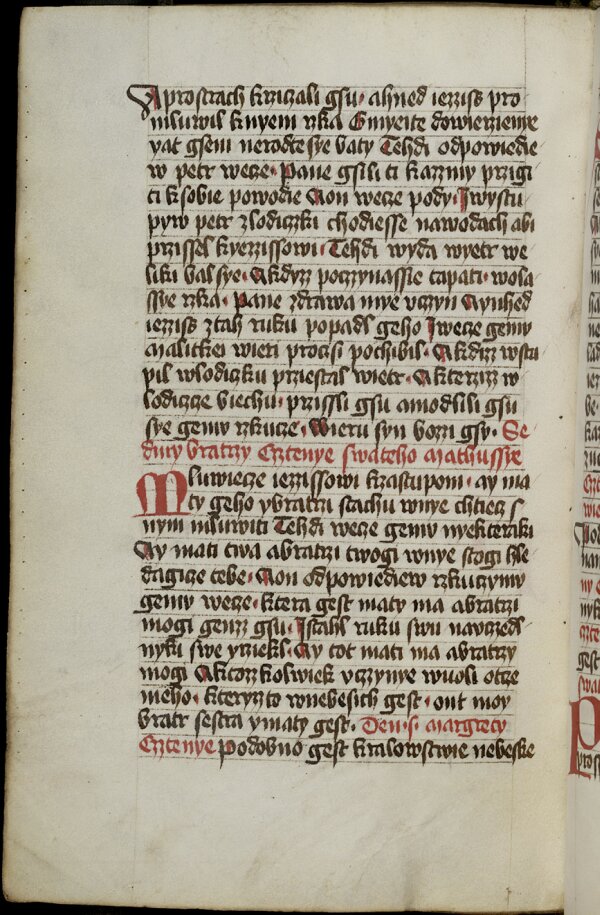 A prostrach krziczali gsu· ahned iezziss pro
mluwil knyem rzka Gmyeite dowierzenye
yat gsem nerodte sye baty Tehdi odpowiedie
w petr wecze· Pane gsili ti kazzmy przigi
ti ksobie powodie Aon wecze pody· Iwystu
pyw petr zlodiczki chodiesse nawodach abi
przissel kyezzissowi· Tehdi wyda wyetr we
liku bal sye· Akdyz poczynassie tapati· wola
sye rzka· Pane zdrawa mye vczyn Ayuhed
iezziss ztah ruku popadl geho Iwecze gemu
Malitkei wieri procisi pochibil· Akdiz wstu
pil wlodiczku przestal wietr· Akterziz w
lodicze biechu· przissli gsu amodlili gsu
sye gemu rzkucze· Wieru syn bozi gsy· Se
dmy bratrzy Cztenye swateho Mathussie
Mluwiecze iezzissowi kzastupom· ay ma
ty geho ybratrzi stachu wnye chtiecz s
nym mluwiti Tehdi wecze gemu nyekteraki
Ay mati twa abratrzi twogi wnye stogi hle
dagicze tebe· Aon odpowiediew rzkuczymu
gemu wecze· ktera gest maty ma abratrzi
mogi genz gsu· Istahl ruku swu navczedl
nyki swe yrziekl· Ay tot mati ma abratrzy
mogi Aktozkolwiek vczynye wuoli otcze
meho· kteryzto wnebesich gest· ont moy
bratr sestra ymaty gest· Den· s· margrety
Cztenye Podobno gest kralowstwie nebeske